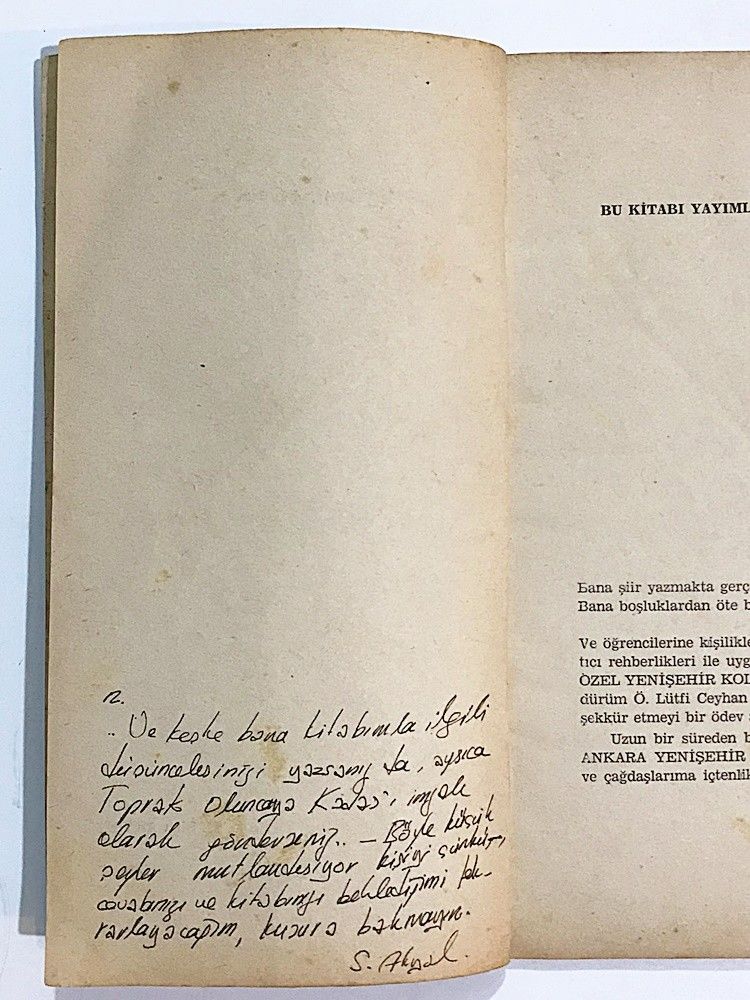 n.
.. Ve keşke bana kitabımla ilgili
düşüncelerinizi yazsanız da, ayrıca
Toprak Oluncaya Kadar'ı imzalı
olarak gönderseniz.. — Böyle küçük
şeyler mutlandırıyor kişiyi çünkü,
cevabınızı ve kitabınızı beklediğimi tek-
rarlayacağım, kusura bakmayın.
S. Akyol.
BU KİTABI YAYIML
Bana şiir yazmakta gerç
Bana boşluklardan öte b
Ve öğrencilerine kişilikle
tıcı rehberlikleri ile uyg
ÖZEL YENİŞEHİR KOL
dürüm Ö. Lütfi Ceyhan
şekkür etmeyi bir ödev
Uzun bir süreden b
ANKARA YENİŞEHİR
ve çağdaşlarıma içtenlik